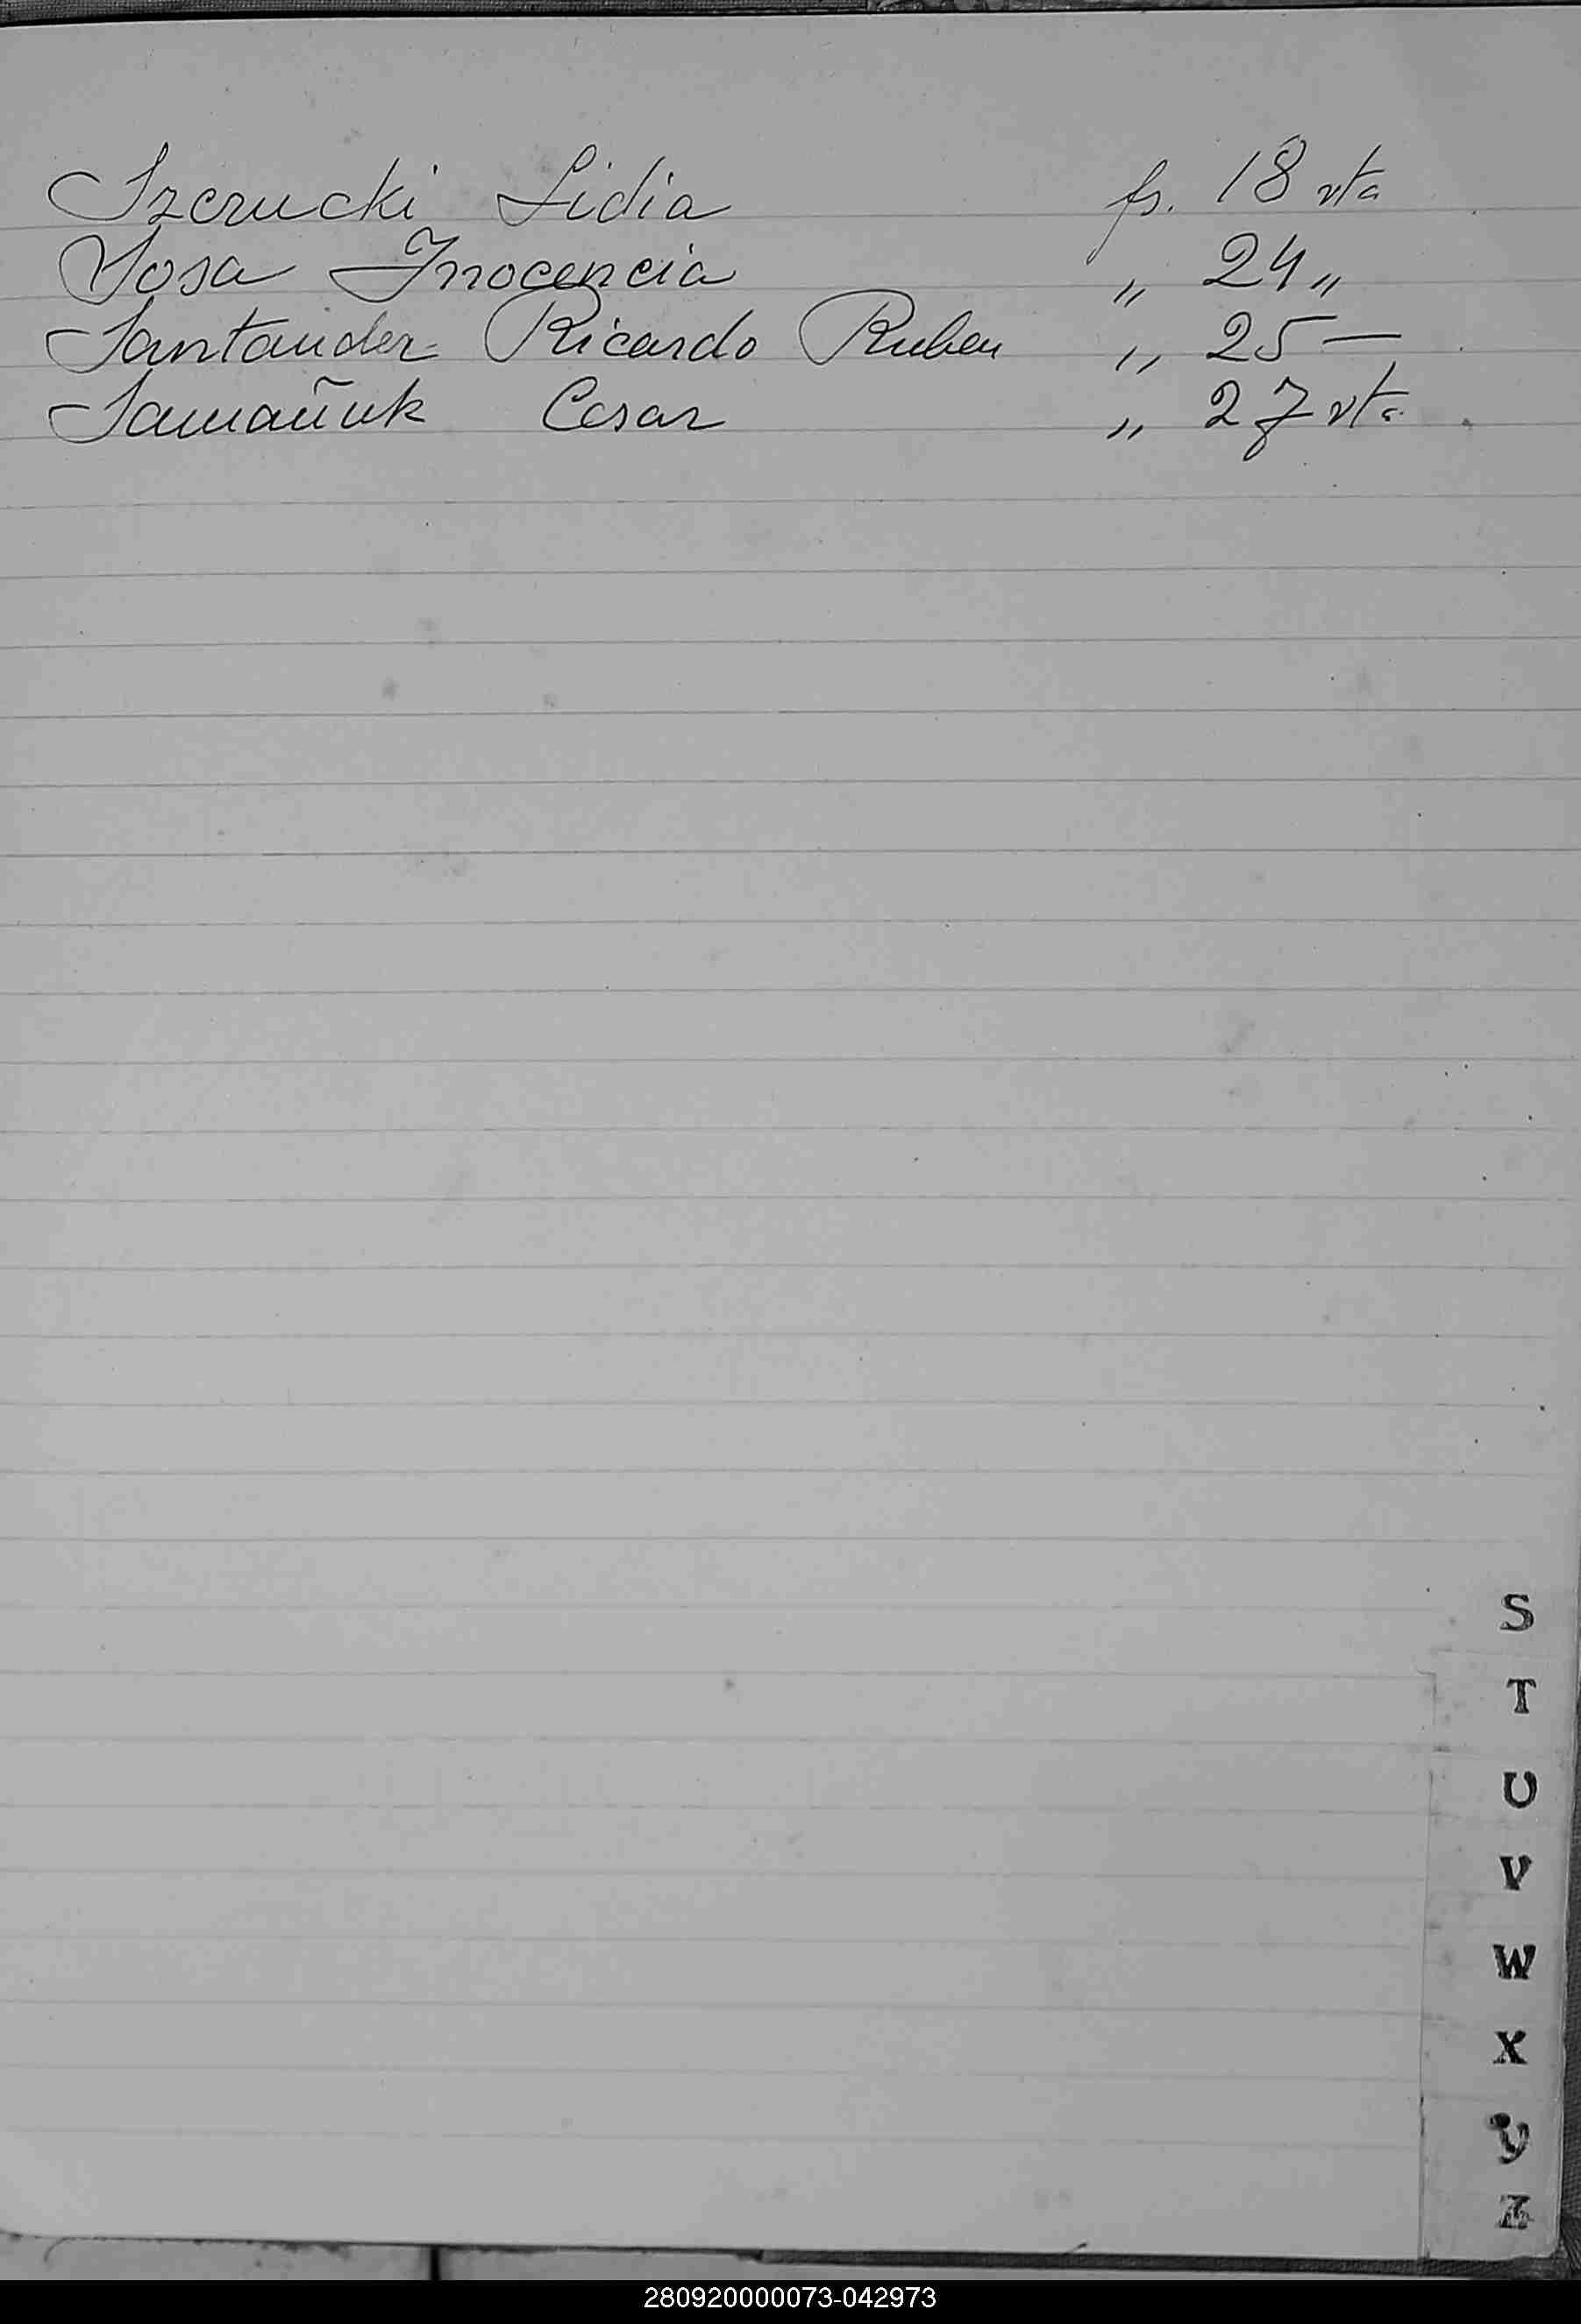 Szcrucki Lidia fs. 18 vta
Sosa Inocencia " 24 "
Santander Ricardo Ruben " 25 —
Samañuk Cesar " 27 vta
S
T
U
V
W
X
Y
Z
280920000073-042973